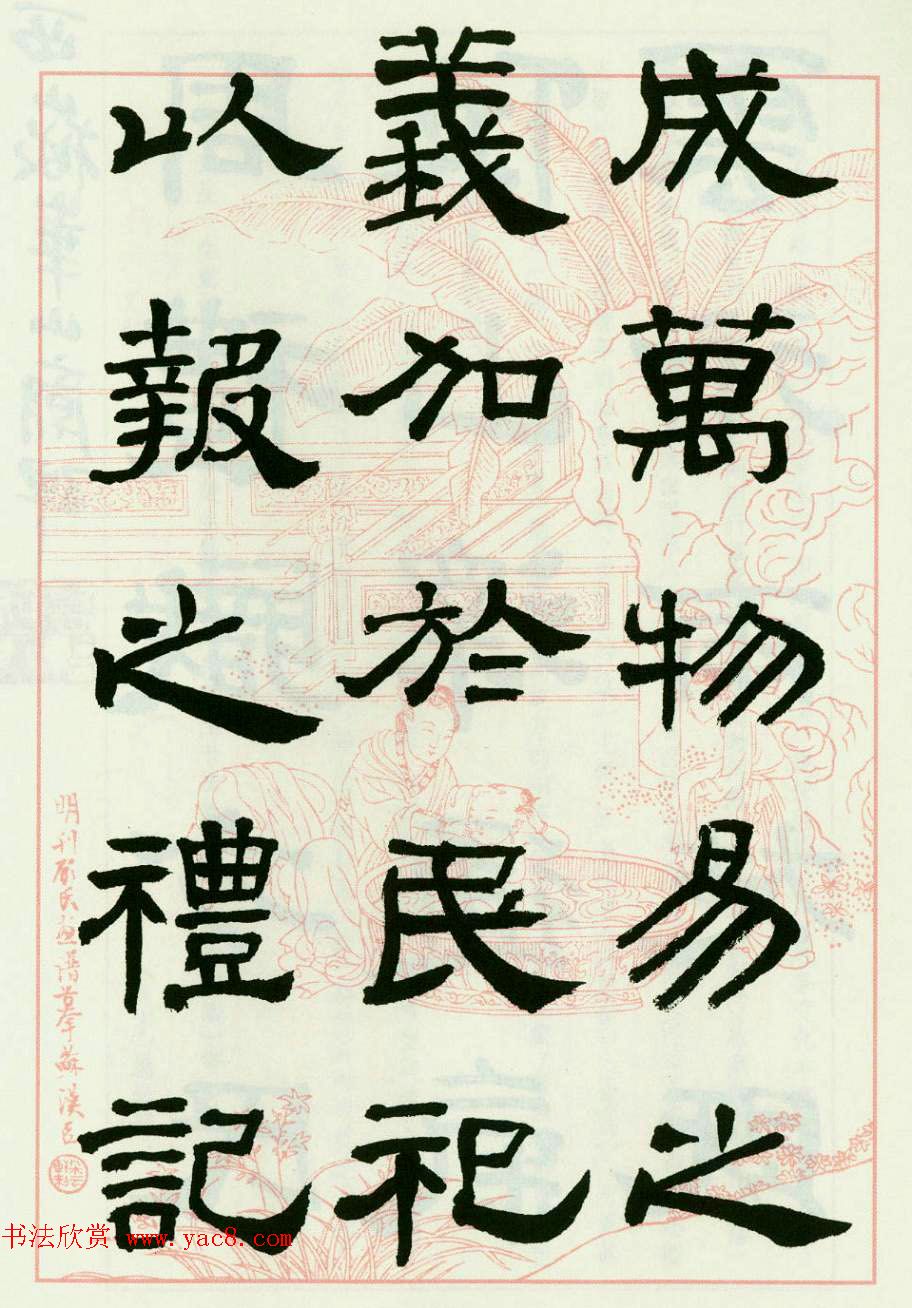 成萬物易之
義加於民祀
以報之禮記
明刊顧氏畫譜摹蘇漢臣
书法欣赏 www.yac8.com